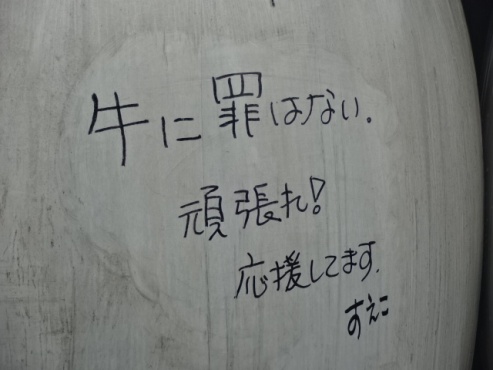 牛に罪はない.
頑張れ!
応援してます.
すえこ